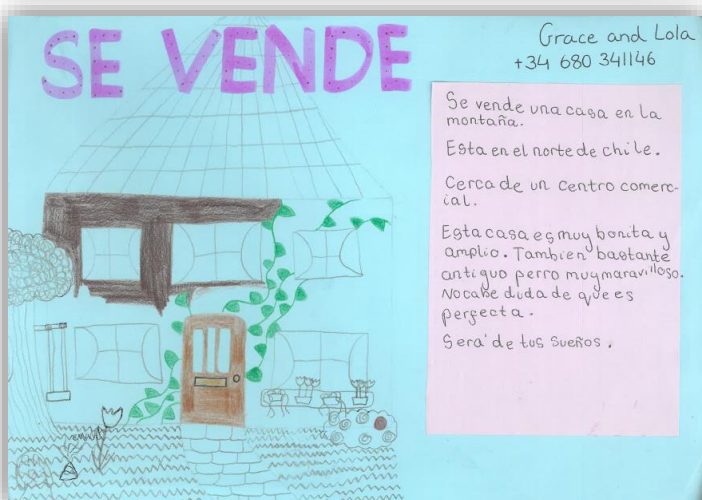 SE VENDE
Grace and Lola
+34 680 341146
Se vende una casa en la
montaña.
Esta en el norte de chile.
Cerca de un centro comerc-
ial.
Esta casa es muy bonita y
amplio. Tambien bastante
antiguo perro muy maravilloso.
No cabe duda de que es
perfecta.
Será de tus sueños.